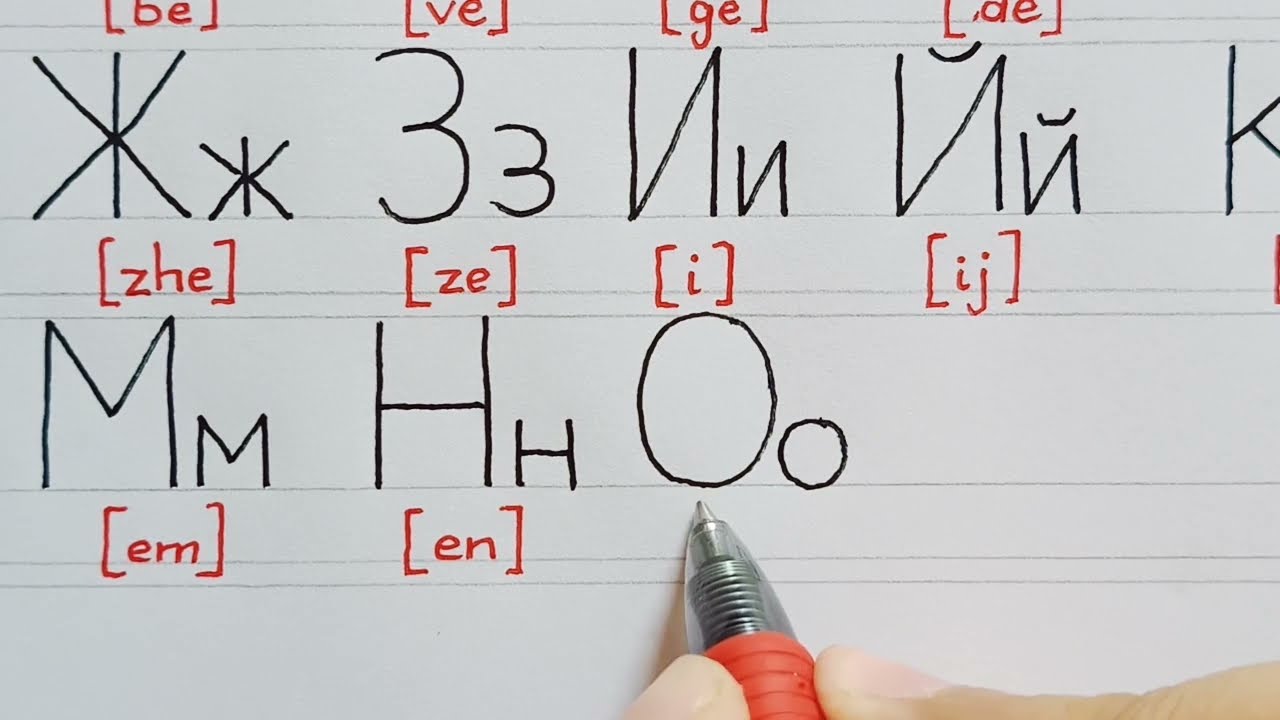 [be] [ve] [ge] [de]
Жж Зз Ии Йй К
[zhe] [ze] [i] [ij]
Мм Нн Оо
[em] [en]